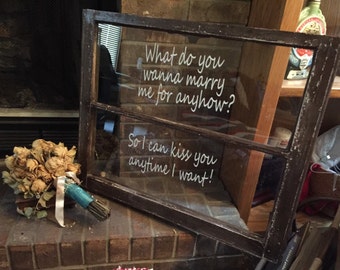 What do you
wanna marry
me for anyhow?
So I can kiss you
anytime I want!